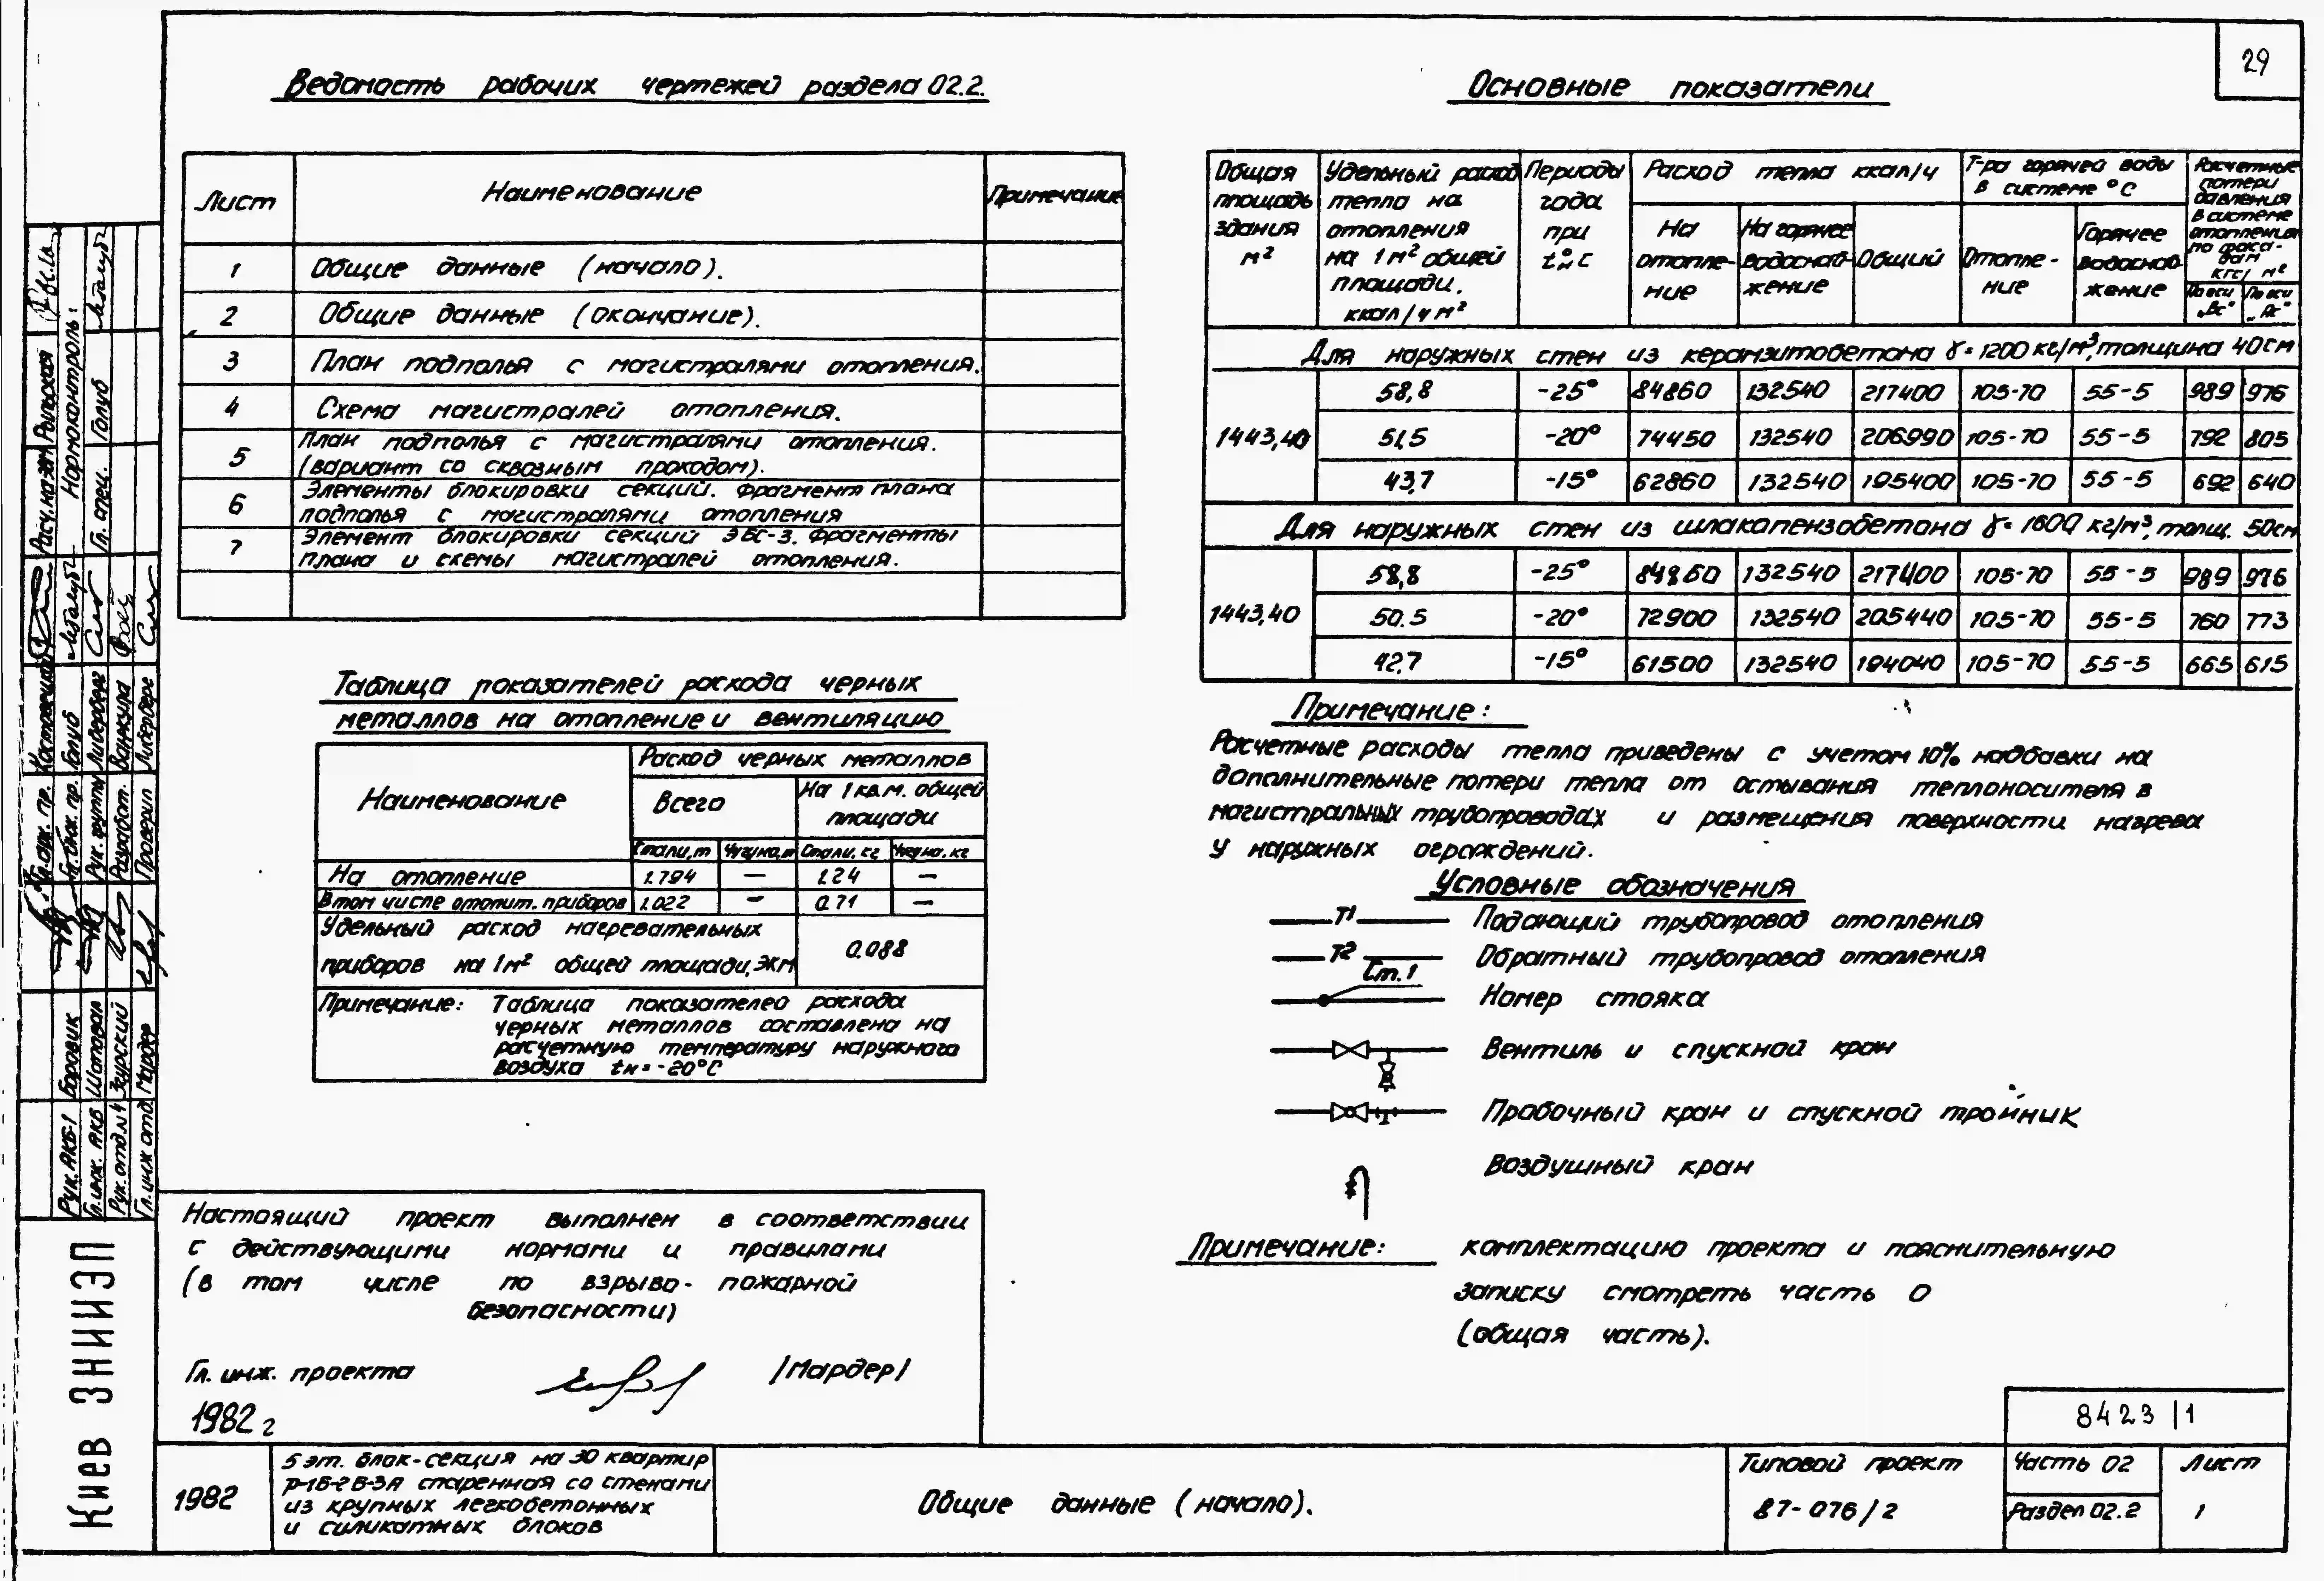 29
Ведомость рабочих чертежей раздела 02.2.
Лист Наименование Примечание
1 Общие данные (начало).
2 Общие данные (окончание).
3 План подполья с магистралями отопления.
4 Схема магистралей отопления.
5 План подполья с магистралями отопления.
(вариант со сквозным проходом).
6 Элементы блокировки секций. Фрагмент плана
подполья с магистралями отопления
7 Элемент блокировки секций ЭБС-3. Фрагменты
плана и схемы магистралей отопления.
Таблица показателей расхода черных
металлов на отопление и вентиляцию
Наименование
Расход черных металлов
Всего
На 1 кв.м. общей
площади
Стали, т Чугуна, т Стали, кг Чугуна, кг
На отопление 1.794 — 1.24 —
В том числе отопит. приборов 1.022 — 0.71 —
Удельный расход нагревательных
приборов на 1м² общей площади, ЭКМ 0.088
Примечание: Таблица показателей расхода
черных металлов составлена на
расчетную температуру наружного
воздуха tн = -20°С
Настоящий проект выполнен в соответствии
с действующими нормами и правилами
(в том числе по взрыво- пожарной
безопасности)
Гл. инж. проекта /Мардер/
1982 г
Основные показатели
Общая
площадь
здания
м²
Удельный расход
тепла на
отопления
на 1 м² общей
площади.
ккал/ч м²
Периоды
года
при
tн°С
Расход тепла ккал/ч
На
отопле-
ние
На горячее
водоснаб-
жение
Общий
Т-ра горячей воды
в системе °С
Отопле-
ние
Горячее
водоснаб-
жение
Расчетные
потери
давления
в системе
отопления
по фаса-
дам
кгс/ м²
По оси
„Вс"
По оси
„Ас"
Для наружных стен из керамзитобетона γ = 1200 кг/м³, толщина 40см
1443,40
58,8 -25° 84860 132540 217400 105-70 55-5 989 976
51,5 -20° 74450 132540 206990 105-70 55-5 792 805
43,7 -15° 62860 132540 195400 105-70 55-5 692 640
Для наружных стен из шлакапензобетона γ = 1600 кг/м³, толщ. 50см
1443,40
58,8 -25° 84860 132540 217400 105-70 55-5 989 976
50.5 -20° 72900 132540 205440 105-70 55-5 760 773
42,7 -15° 61500 132540 194040 105-70 55-5 665 615
Примечание:
Расчетные расходы тепла приведены с учетом 10% надбавки на
дополнительные потери тепла от остывания теплоносителя в
магистральных трубопроводах и размещения поверхности нагрева
у наружных ограждений.
Условные обозначения
Т1 Подающий трубопровод отопления
Т2 Обратный трубопровод отопления
Ст.1 Номер стояка
Вентиль и спускной кран
Пробочный кран и спускной тройник
Воздушный кран
Примечание: комплектацию проекта и пояснительную
записку смотреть часть 0
(общая часть).
8423 /1
1982
5 эт. блок-секция на 30 квартир
Р-1Б-2Б-3А спаренная со стенами
из крупных легкобетонных
и силикатных блоков
Общие данные (начало).
Типовой проект
87-076/2
Часть 02
Раздел 02.2
Лист
1
Киев ЗНИИЭП
Рук. АКБ-1 Боровик
Гл. инж. АКБ Шаповал
Рук. отд. №4 Згурский
Гл. инж отд. Мардер
Гл. арх. пр.
Гл. бюж. пр. Голуб
Рук. группы Лидерберг
Разработ. Ванжура
Проверил
Нормоконтроль:
Гл. спец. Голуб